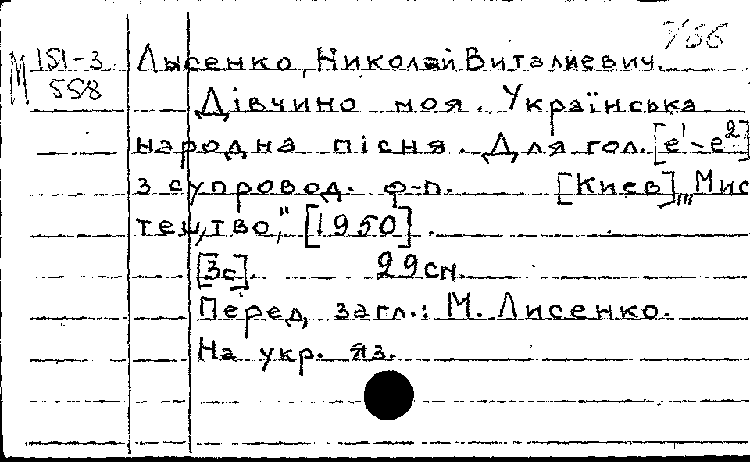 7/56
М 151-3
558
Лысенко, Николай Виталиевич.
Дівчино моя. Українська
народна пісня. Для гол. [e'-e²]
з супровод. ф-п. [Киев], „Мис
тецтво," [1950].
[3с]. 29см.
Перед загл.: М. Лисенко.
На укр. яз.